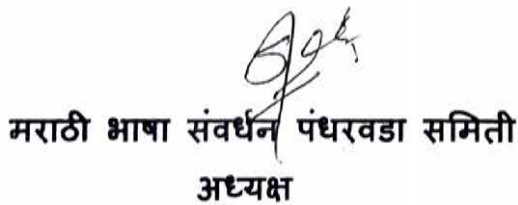 मराठी भाषा संवर्धन पंधरवडा समिती
अध्यक्ष